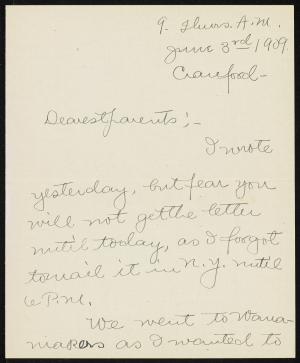 9. Thurs. A.M.
June 3rd 1909.
Cranford-
Dearest parents;-
I wrote
yesterday, but fear you
will not get the letter
until today, as I forgot
to mail it in N.Y. until
6 P.M.
We went to Wana-
makers as I wanted to